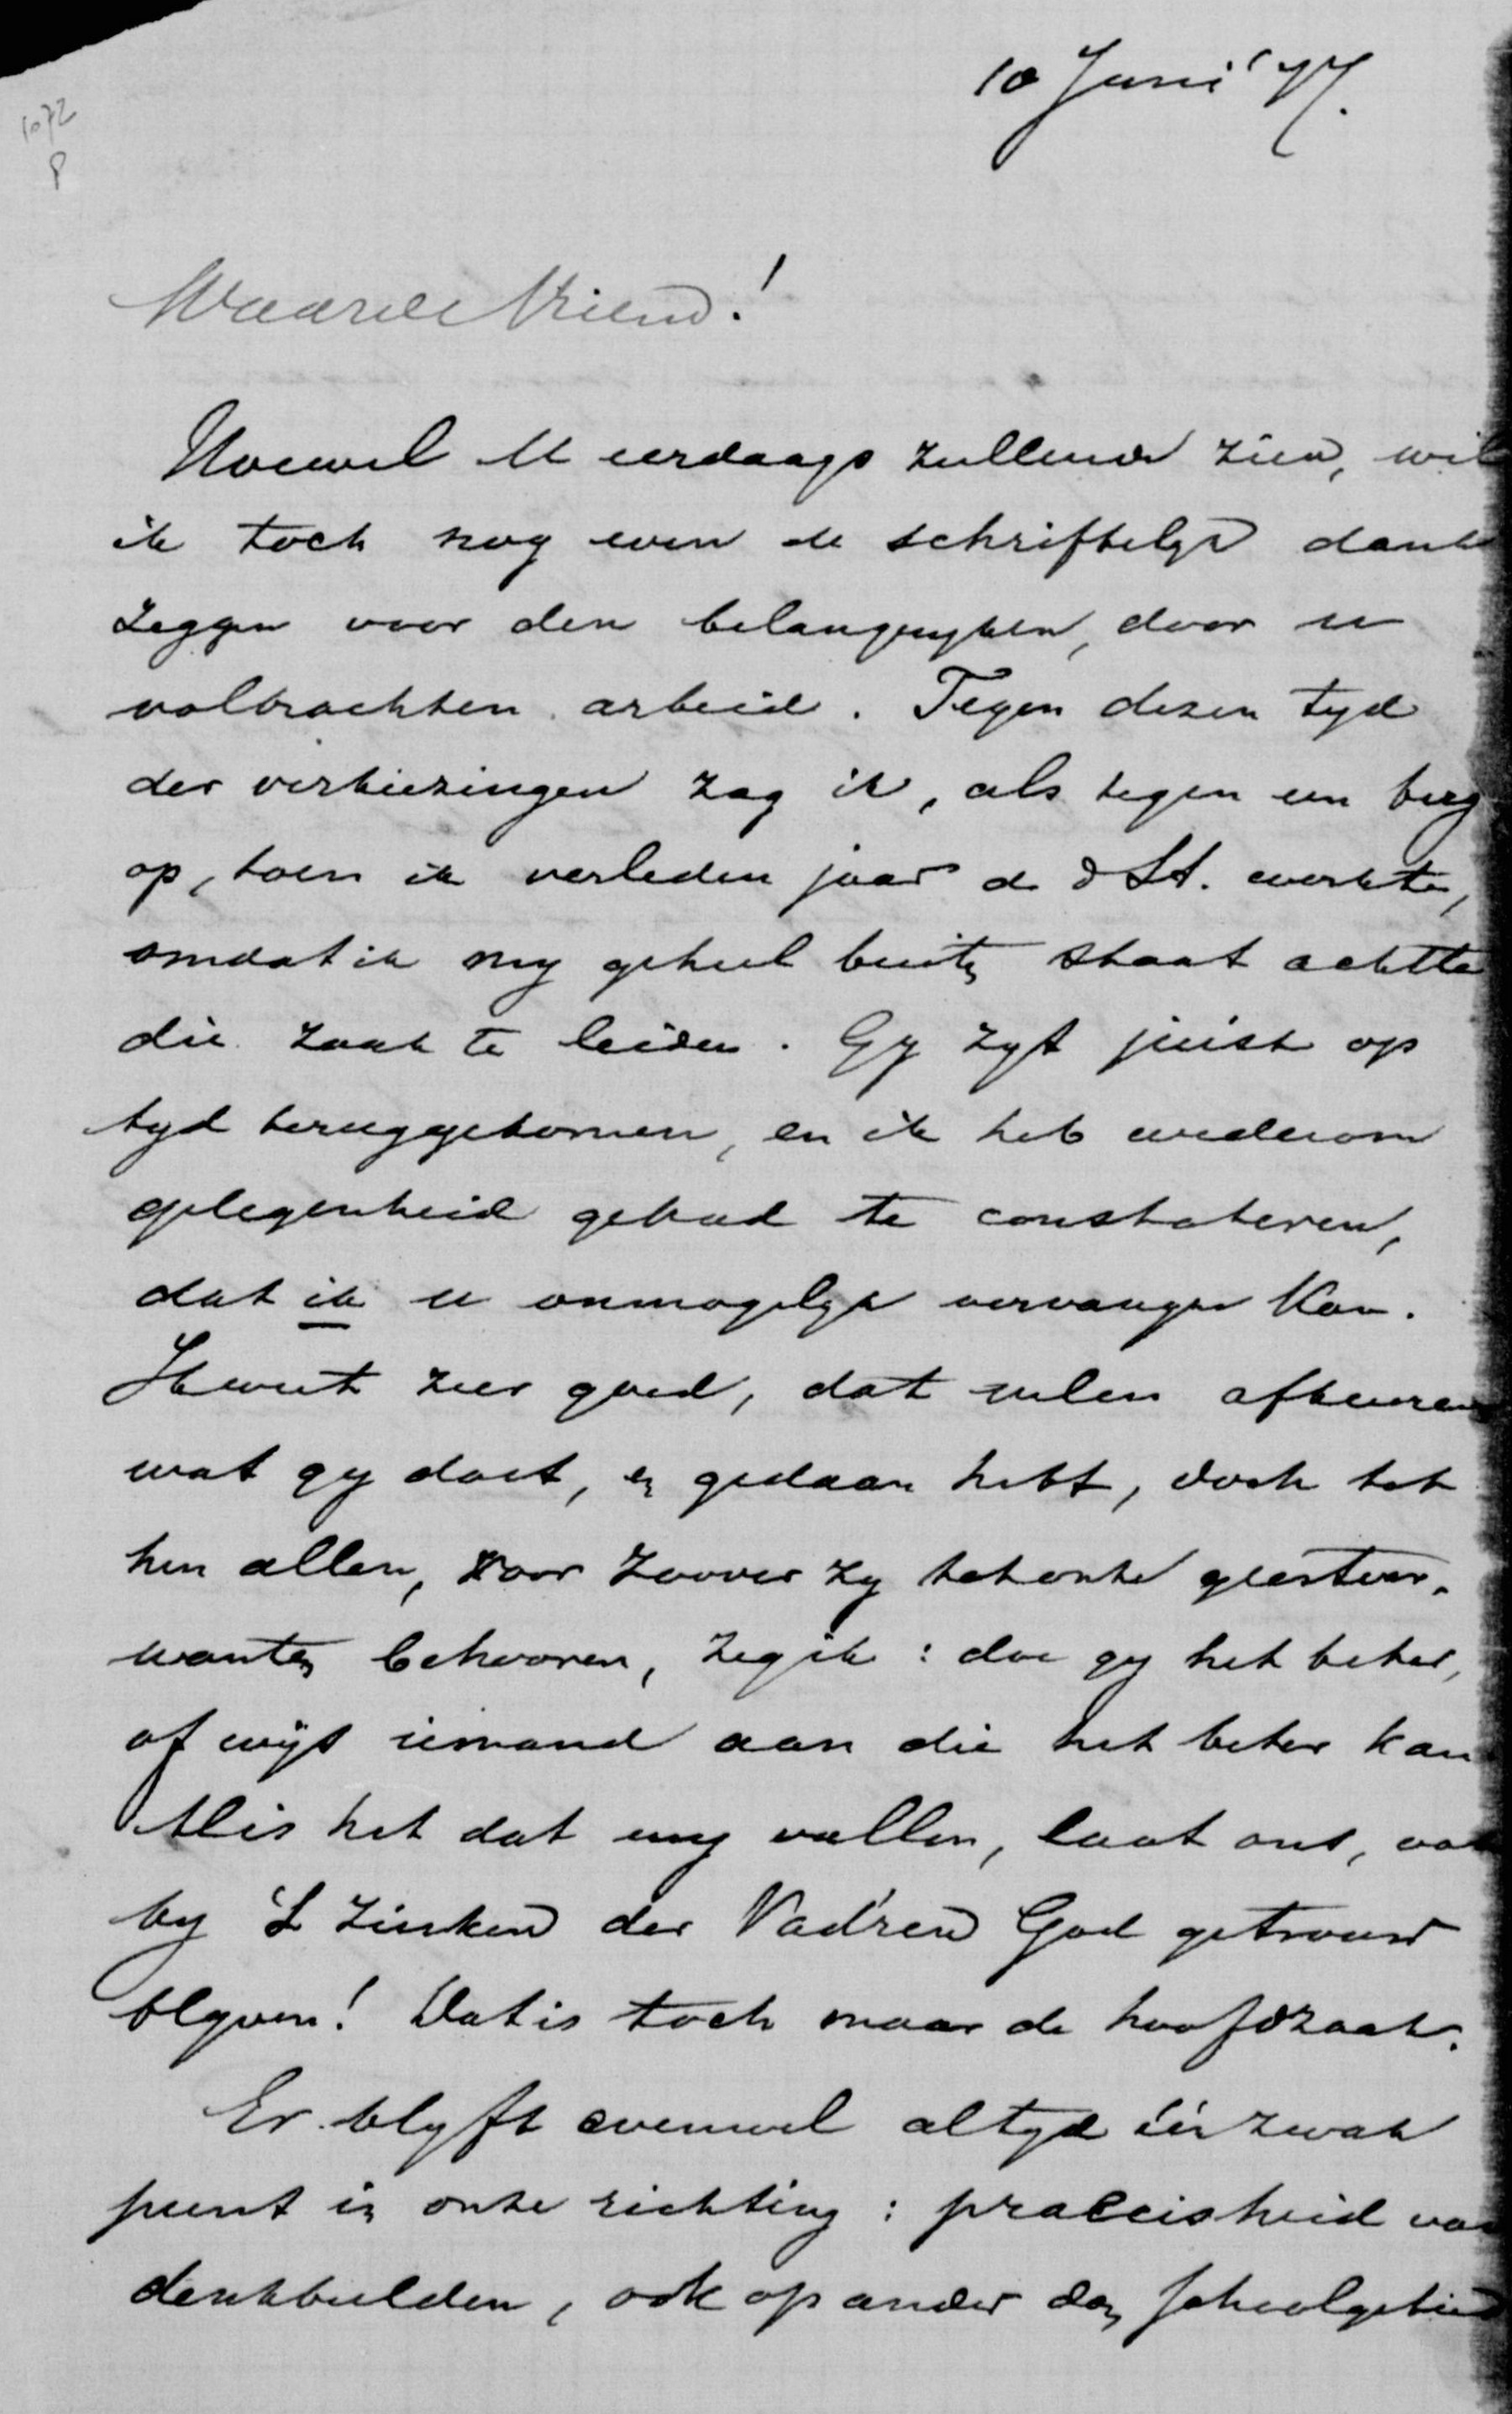 10 Juni '77.
1072
P
Waarde Vriend!
Hoewel U eerdaags zullende zien, wil
ik toch nog even de schriftelyke dank
zeggen voor den belangryken, door u
volbrachten arbeid. Tegen dezen tyd
der verkiezingen zag ik, als tegen een berg
op, toen ik verleden jaar de d St. werkte,
omdat ik my geheel buiten staat achtte
die zaak te leiden. Gy zyt juist op
tyd teruggekomen, en ik heb wederom
gelegenheid gehad te constateren,
dat ik u onmogelyk vervangen kan.
Ik weet zeer goed, dat velen afkeuren
wat gy doet, en gedaan hebt, doch tot
hen allen, voor zoover zy tot onze geestver-
wanten behooren, zeg ik: doe gy het beter,
of wyst iemand aan die het beter kan
Als het dat wy vallen, laat ons, ook
by 't zinken der Vad'ren God getrouw
blyven! Dat is toch maar de hoofdzaak.
Er blyft evenwel altyd één zwak
punt in onze richting: praecisheid van
denkbeelden, ook op ander dan schoolgebied